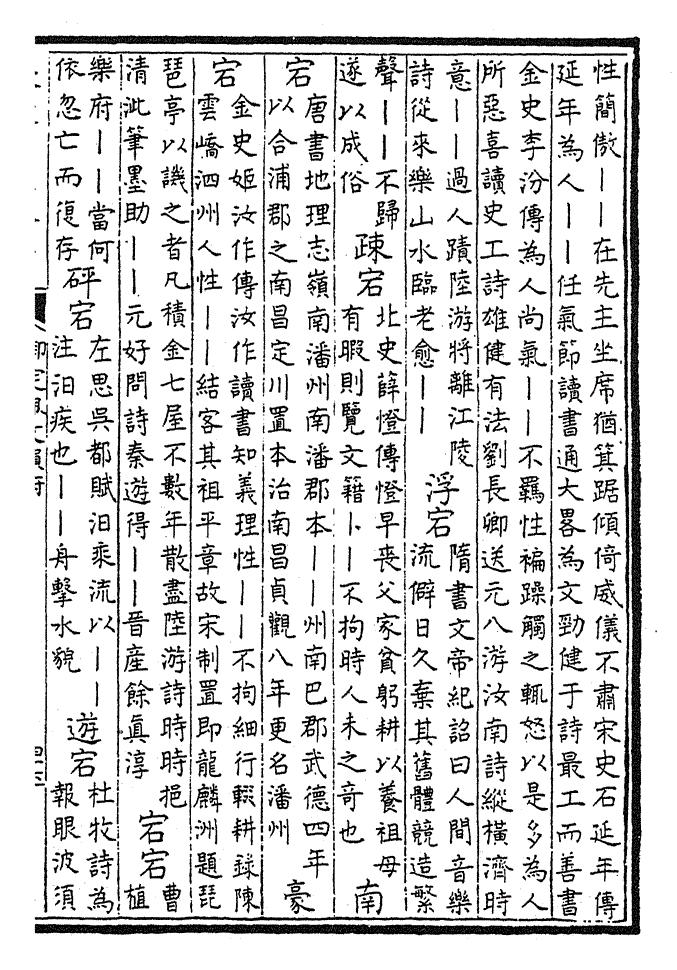 性簡傲丨丨在先主坐席猶箕踞傾倚威儀不肅宋史石延年傳
延年為人丨丨任氣節讀書通大畧為文勁健于詩最工而善書
金史李汾傳為人尚氣丨丨不羈性褊躁觸之輒怒以是多為人
所惡喜讀史工詩雄健有法劉長卿送元八游汝南詩縱橫濟時
意丨丨過人蹟陸游將離江陵
詩從來樂山水臨老愈丨丨
浮宕
隋書文帝紀詔曰人間音樂
流僻日久棄其舊體競造繁
聲丨丨不歸
遂以成俗
疎宕
北史薛憕傳憕早喪父家貧躬耕以養祖母
有暇則覽文籍丨丨不拘時人未之奇也
南
宕
唐書地理志嶺南潘州南潘郡本丨丨州南巴郡武德四年
以合浦郡之南昌定川置本治南昌貞觀八年更名潘州
豪
宕
金史姬汝作傳汝作讀書知義理性丨丨不拘細行輟耕錄陳
雲嶠泗州人性丨丨結客其祖平章故宋制置即龍麟洲題琵
琶亭以譏之者凡積金七屋不數年散盡陸游詩時時挹
清泚筆墨助丨丨元好問詩秦遊得丨丨晉産餘眞淳
宕宕
曹
植
樂府丨丨當何
依忽亡而復存
砰宕
左思吳都賦汩乘流以丨丨
注汩疾也丨丨舟擊水貌
遊宕
杜牧詩為
報眼波須